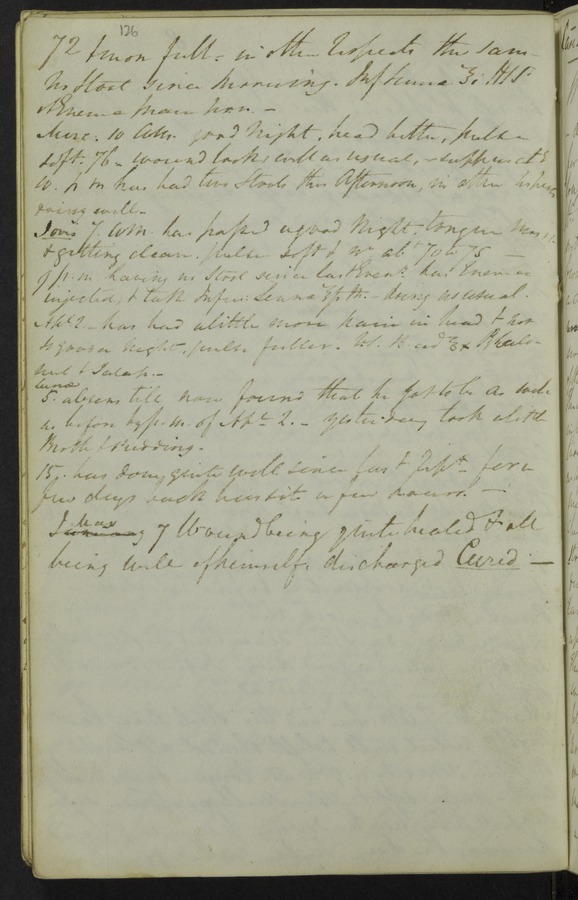 126
72 & more full - in other respects the same
No Stool since morning. Inf Sennae ʒi. H.S.
Enema
Merc. 10 a.m. good night, head better, pulse
soft. 76 - wound looks well as usual,
10. p m has had two Stools this Afternoon, in other respects
doing well -
Jovis 7. a.m. has passed a good Night, tongue
& getting clean. pulse soft & at 70 to 75 -
9 p.m. having no Stool since last Eveng. has Enema
injected, & take Infus: Senna - doing as usual.
Apl. 2 - has had a little more pain in head & not
so good a night. pulse fuller.
& Jalap. -
Lunae
5. absens till now found that he got to be as well
as before by p.m. of Apl. 2. - yesterday took a little
Broth & Pudding.
15. has done quite well since last Rept. for a
few days back has sit up a few hours. -
May 7 Wound being quite healed & all
being well of himself, discharged Cured -